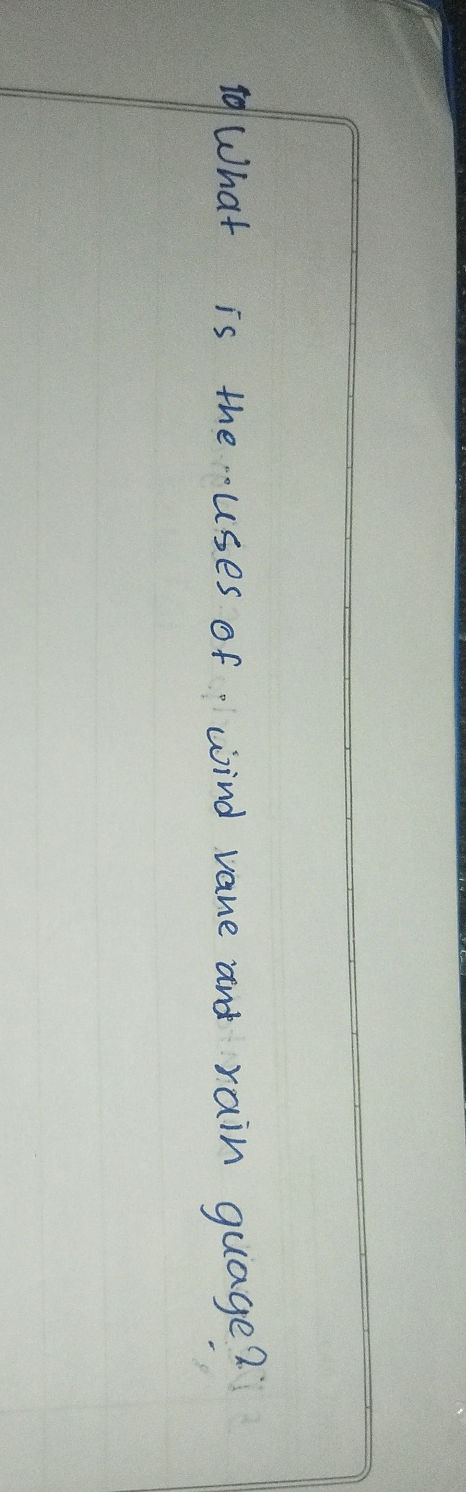 10 What is the uses of wind vane and rain guage?